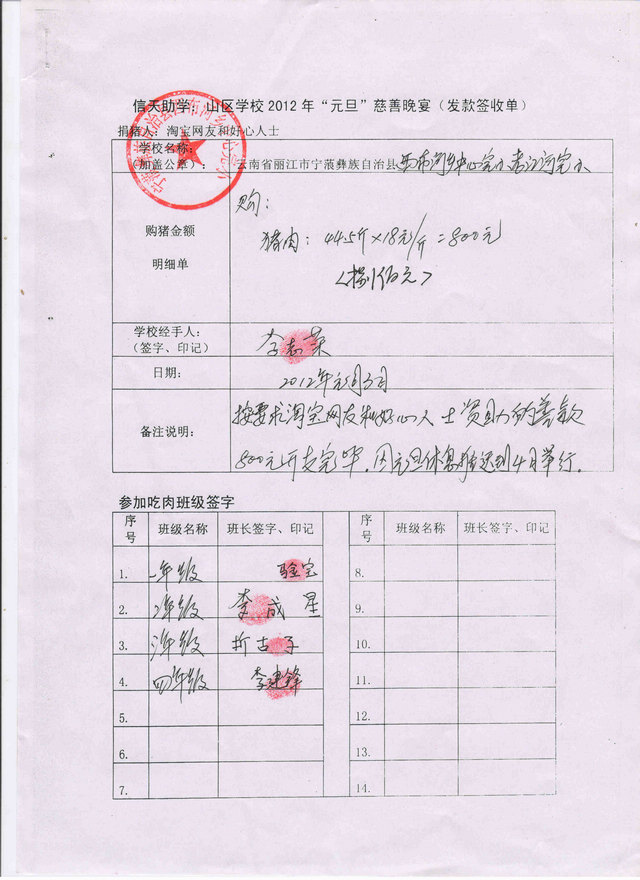 信天助学：山区学校2012年“元旦”慈善晚宴（发款签收单）
捐猪人：淘宝网友和好心人士
学校名称：
（加盖公章）：
云南省丽江市宁蒗彝族自治县西布河乡中心完小
购猪金额
明细单
购：
猪肉：44.5斤×18元/斤=800元
〈捌佰元〉
学校经手人：
（签字、印记）
李志荣
日期：
2012年元月6月
备注说明：
按要求淘宝网友和好心人士资助的善款
800元开支完毕，因元旦休息推迟到4月举行。
参加吃肉班级签字
序号 班级名称 班长签字、印记 序号 班级名称 班长签字、印记
1. 一年级 8.
2. 2年级 李成星 9.
3. 3年级 折古子 10.
4. 四年级 李建锋 11.
5. 12.
6. 13.
7. 14.